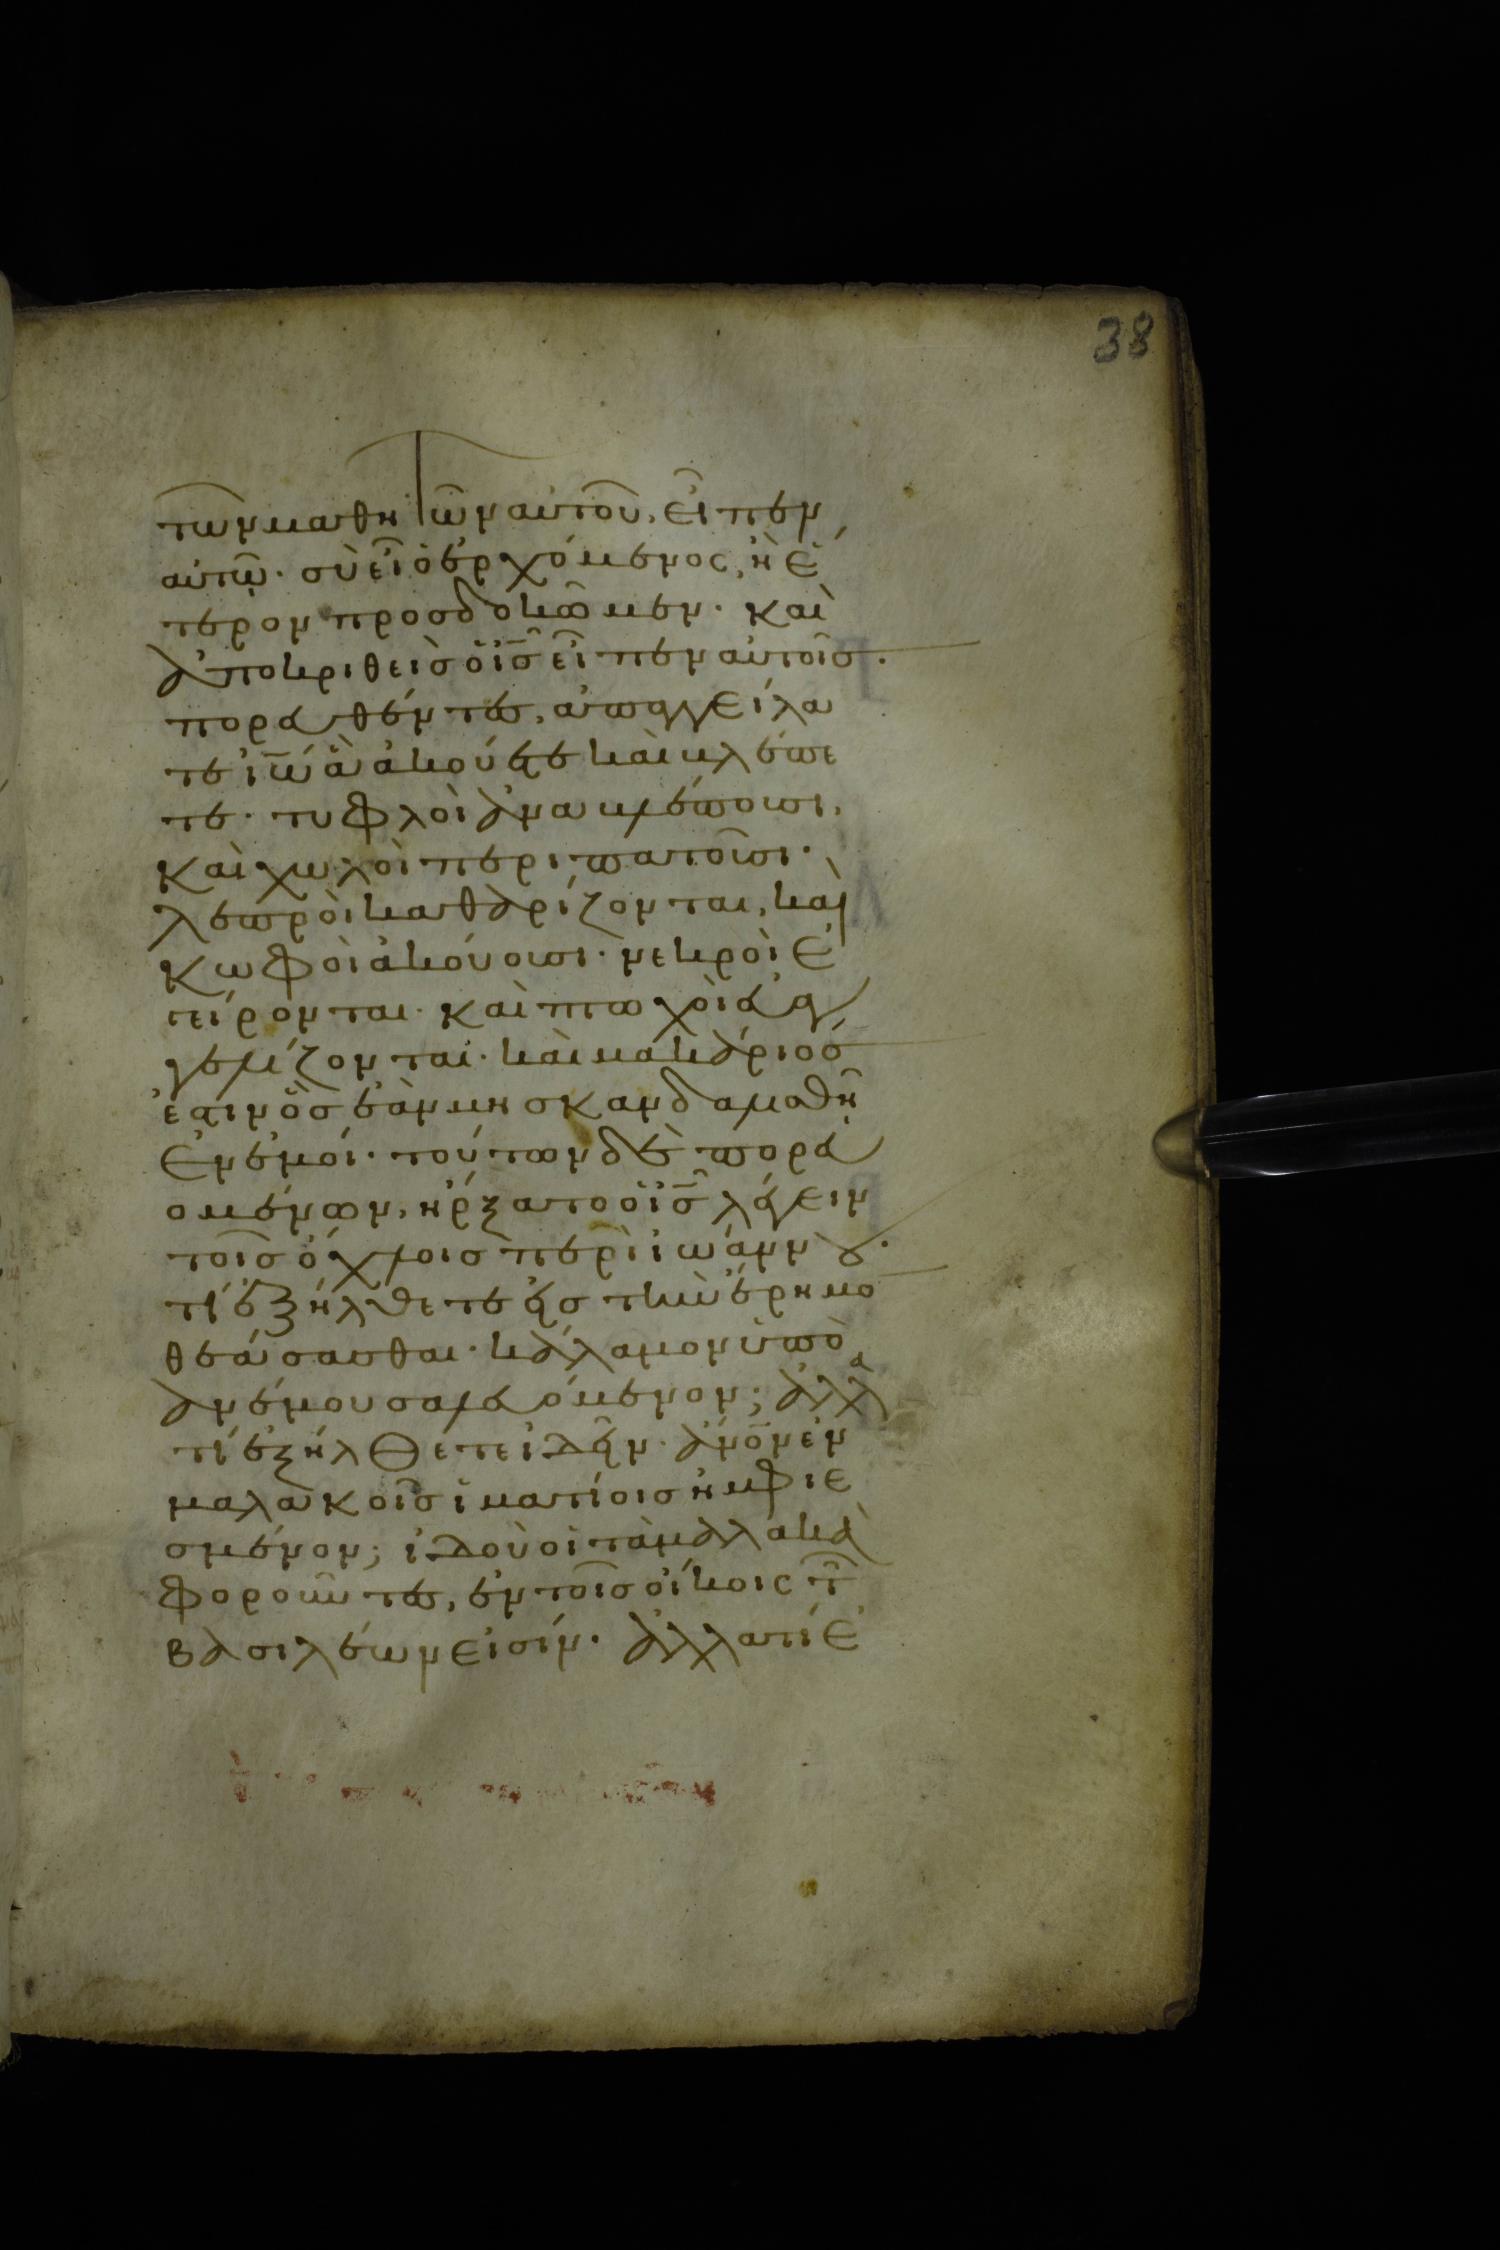 38
τῶν μαθητῶν αὐτοῦ, εἶπεν
αὐτῷ· σὺ εἶ ὁ ἐρχόμενος, ἢ ἕ
τερον προσδοκῶμεν· καὶ
ἀποκριθεὶς ὁ ἰς̅ εἶπεν αὐτοῖς·
πορευθέντες, ἀπαγγείλα
τε ἰω̅ ἃ ἀκούετε καὶ βλέπε
τε· τυφλοὶ ἀναβλέπουσι,
καὶ χωλοὶ περιπατοῦσι·
λεπροὶ καθαρίζονται, καὶ
κωφοὶ ἀκούουσι· νεκροὶ ἐ
γείρονται· καὶ πτωχοὶ εὐαγ
γελίζονται· καὶ μακάριος
ἐστιν ὃς ἐὰν μὴ σκανδαλισθῇ
ἐν ἐμοί· τούτων δὲ πορευ
ομένων, ἤρξατο ὁ ἰς̅ λέγειν
τοῖς ὄχλοις περὶ ἰωάννου·
τί ἐξήλθετε εἰς τὴν ἔρημο
θεάσασθαι· κάλαμον ὑπὸ
ἀνέμου σαλευόμενον; ἀλλα
τί ἐξήλθετε ἰδεῖν· ἄνο̅ν ἐν
μαλακοῖς ἱματίοις ἠμφιε
σμένον; ἰδοὺ οἱ τὰ μαλακὰ
φοροῦντες, ἐν τοῖς οἴκοις τῶ
βασιλέων εἰσίν· ἀλλα τί ἐ